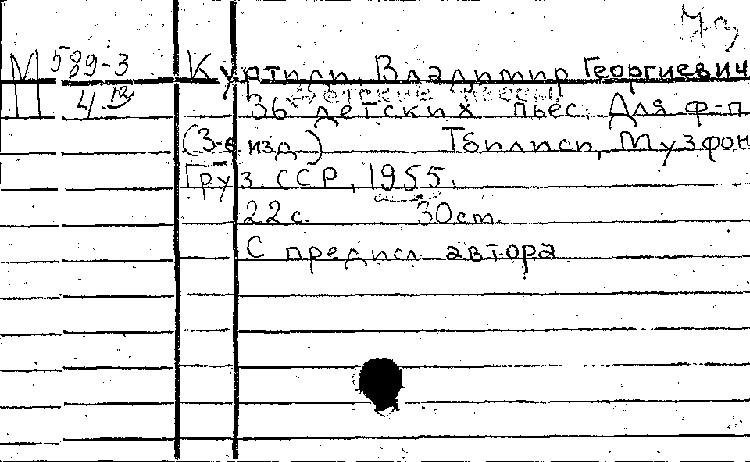 М 589-3
4
Куртиди, Владимир Георгиевич
36 детских пьес. Для ф-п
(3-е изд.) Тбилиси, Музфон
Груз. ССР, 1955.
22 с. 30 см.
С предисл автора